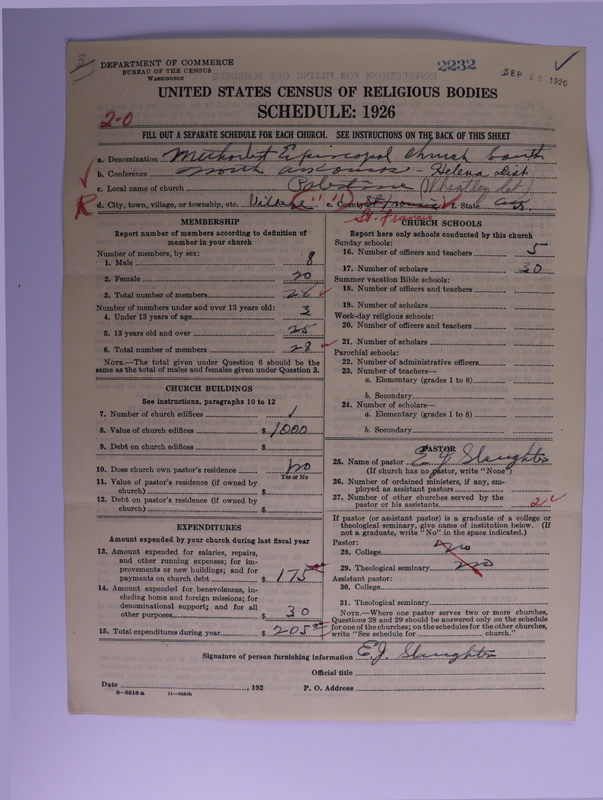 3
DEPARTMENT OF COMMERCE
BUREAU OF THE CENSUS
WASHINGTON
2232
SEP 25 1926
UNITED STATES CENSUS OF RELIGIOUS BODIES
SCHEDULE: 1926
2-0
FILL OUT A SEPARATE SCHEDULE FOR EACH CHURCH. SEE INSTRUCTIONS ON THE BACK OF THIS SHEET
a. Denomination Methodist Episcopal Church South
b. Conference North Arkansas - Helena Dist
c. Local name of church Palestine (Wheatley Ct)
R d. City, town, village, or township, etc. Village e. County St Francis f. State Ark.
St. Francis
MEMBERSHIP
Report number of members according to definition of member in your church
Number of members, by sex:
1. Male 8
2. Female 20
3. Total number of members 28
Number of members under and over 13 years old:
4. Under 13 years of age 3
5. 13 years old and over 25
6. Total number of members 28
NOTE.—The total given under Question 6 should be the same as the total of males and females given under Question 3.
CHURCH BUILDINGS
See instructions, paragraphs 10 to 12
7. Number of church edifices 1
8. Value of church edifices $ 1000
9. Debt on church edifices $
10. Does church own pastor's residence No
Yes or No
11. Value of pastor's residence (if owned by church) $
12. Debt on pastor's residence (if owned by church) $
EXPENDITURES
Amount expended by your church during last fiscal year
13. Amount expended for salaries, repairs, and other running expenses; for improvements or new buildings; and for payments on church debt $ 175
14. Amount expended for benevolences, including home and foreign missions; for denominational support; and for all other purposes $ 30
15. Total expenditures during year $ 205
CHURCH SCHOOLS
Report here only schools conducted by this church
Sunday schools:
16. Number of officers and teachers 5
17. Number of scholars 30
Summer vacation Bible schools:
18. Number of officers and teachers
19. Number of scholars
Week-day religious schools:
20. Number of officers and teachers
21. Number of scholars
Parochial schools:
22. Number of administrative officers
23. Number of teachers—
a. Elementary (grades 1 to 8)
b. Secondary
24. Number of scholars—
a. Elementary (grades 1 to 8)
b. Secondary
PASTOR
25. Name of pastor E J Slaughter
(If church has no pastor, write "None")
26. Number of ordained ministers, if any, employed as assistant pastors
27. Number of other churches served by the pastor or his assistants 2
If pastor (or assistant pastor) is a graduate of a college or theological seminary, give name of institution below. (If not a graduate, write "No" in the space indicated.)
Pastor:
28. College no
29. Theological seminary no
Assistant pastor:
30. College
31. Theological seminary
NOTE.—Where one pastor serves two or more churches, Questions 28 and 29 should be answered only on the schedule for one of the churches; on the schedules for the other churches, write "See schedule for church."
Signature of person furnishing information E.J. Slaughter
Official title
Date , 192 P. O. Address
8-5518 a 11-9084b